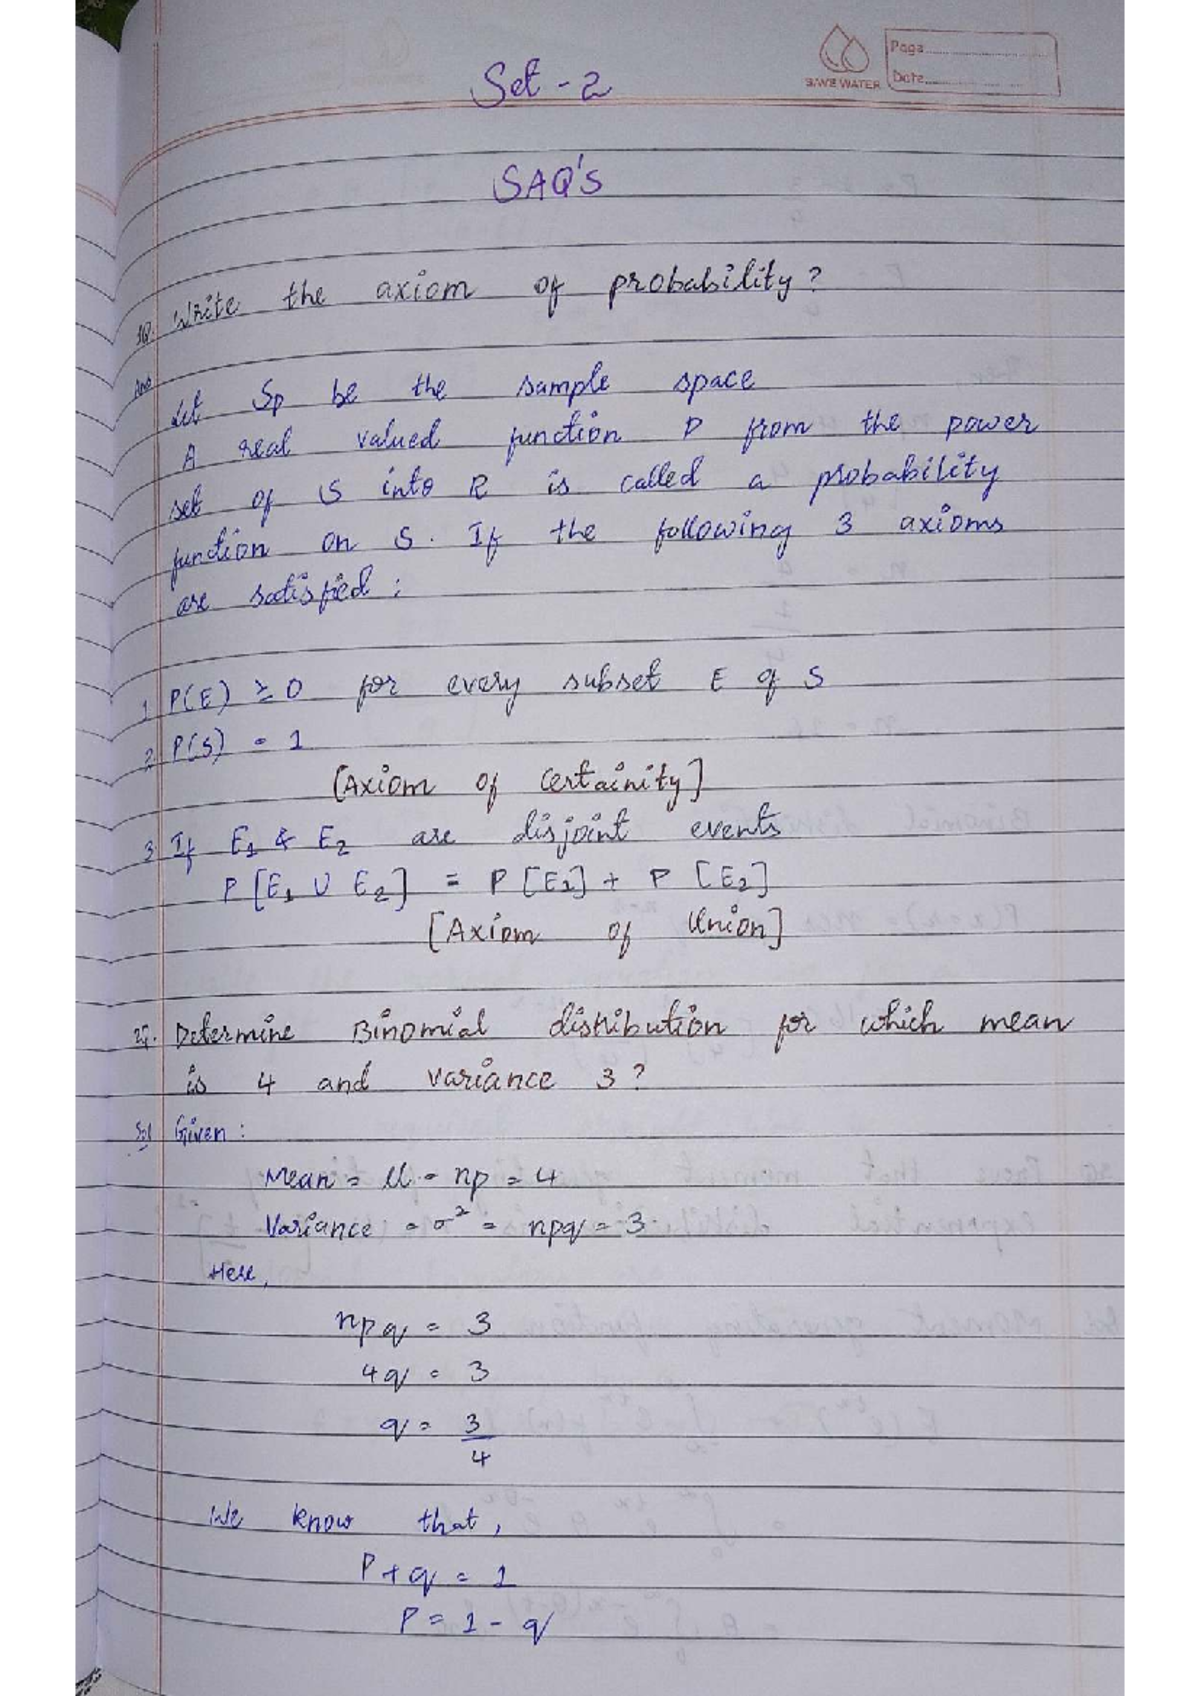 Set - 2
SAVE WATER
Page
Date
SAQ'S
1Q. Write the axiom of probability?
Ans Let Sp be the sample space
A real valued function P from the power
set of S into R is called a probability
function on S. If the following 3 axioms
are satisfied:
1 P(E) ≥ 0 for every subset E of S
2 P(S) = 1
[Axiom of certainity]
3 If E1 & E2 are disjoint events
P [E1 ∪ E2] = P [E1] + P [E2]
[Axiom of Union]
2Q. Determine Binomial distribution for which mean
is 4 and variance 3?
Sol Given:
Mean = μ = np = 4
Variance = σ² = npq = 3
Here,
npq = 3
4q = 3
q = 3/4
We know that,
P + q = 1
P = 1 - q